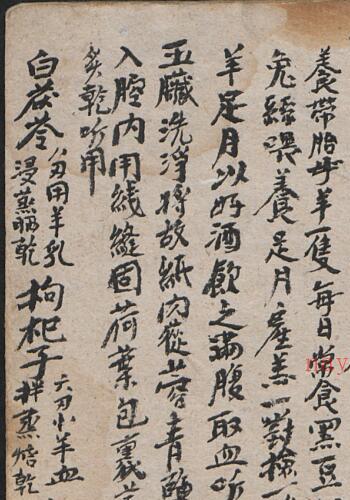 養帶胎母羊一隻每日常食黑豆
兔絲喂養足月產羔一對撿
羊足月以好酒飲之满腹取血听
五臟洗淨将故紙肉蓯蓉青鹽
入腔内用线縫固荷葉包裹蒸
炙乾听用
白茯苓八刃用羊乳浸蒸晒乾枸杞子六刃小羊血拌蒸焙乾